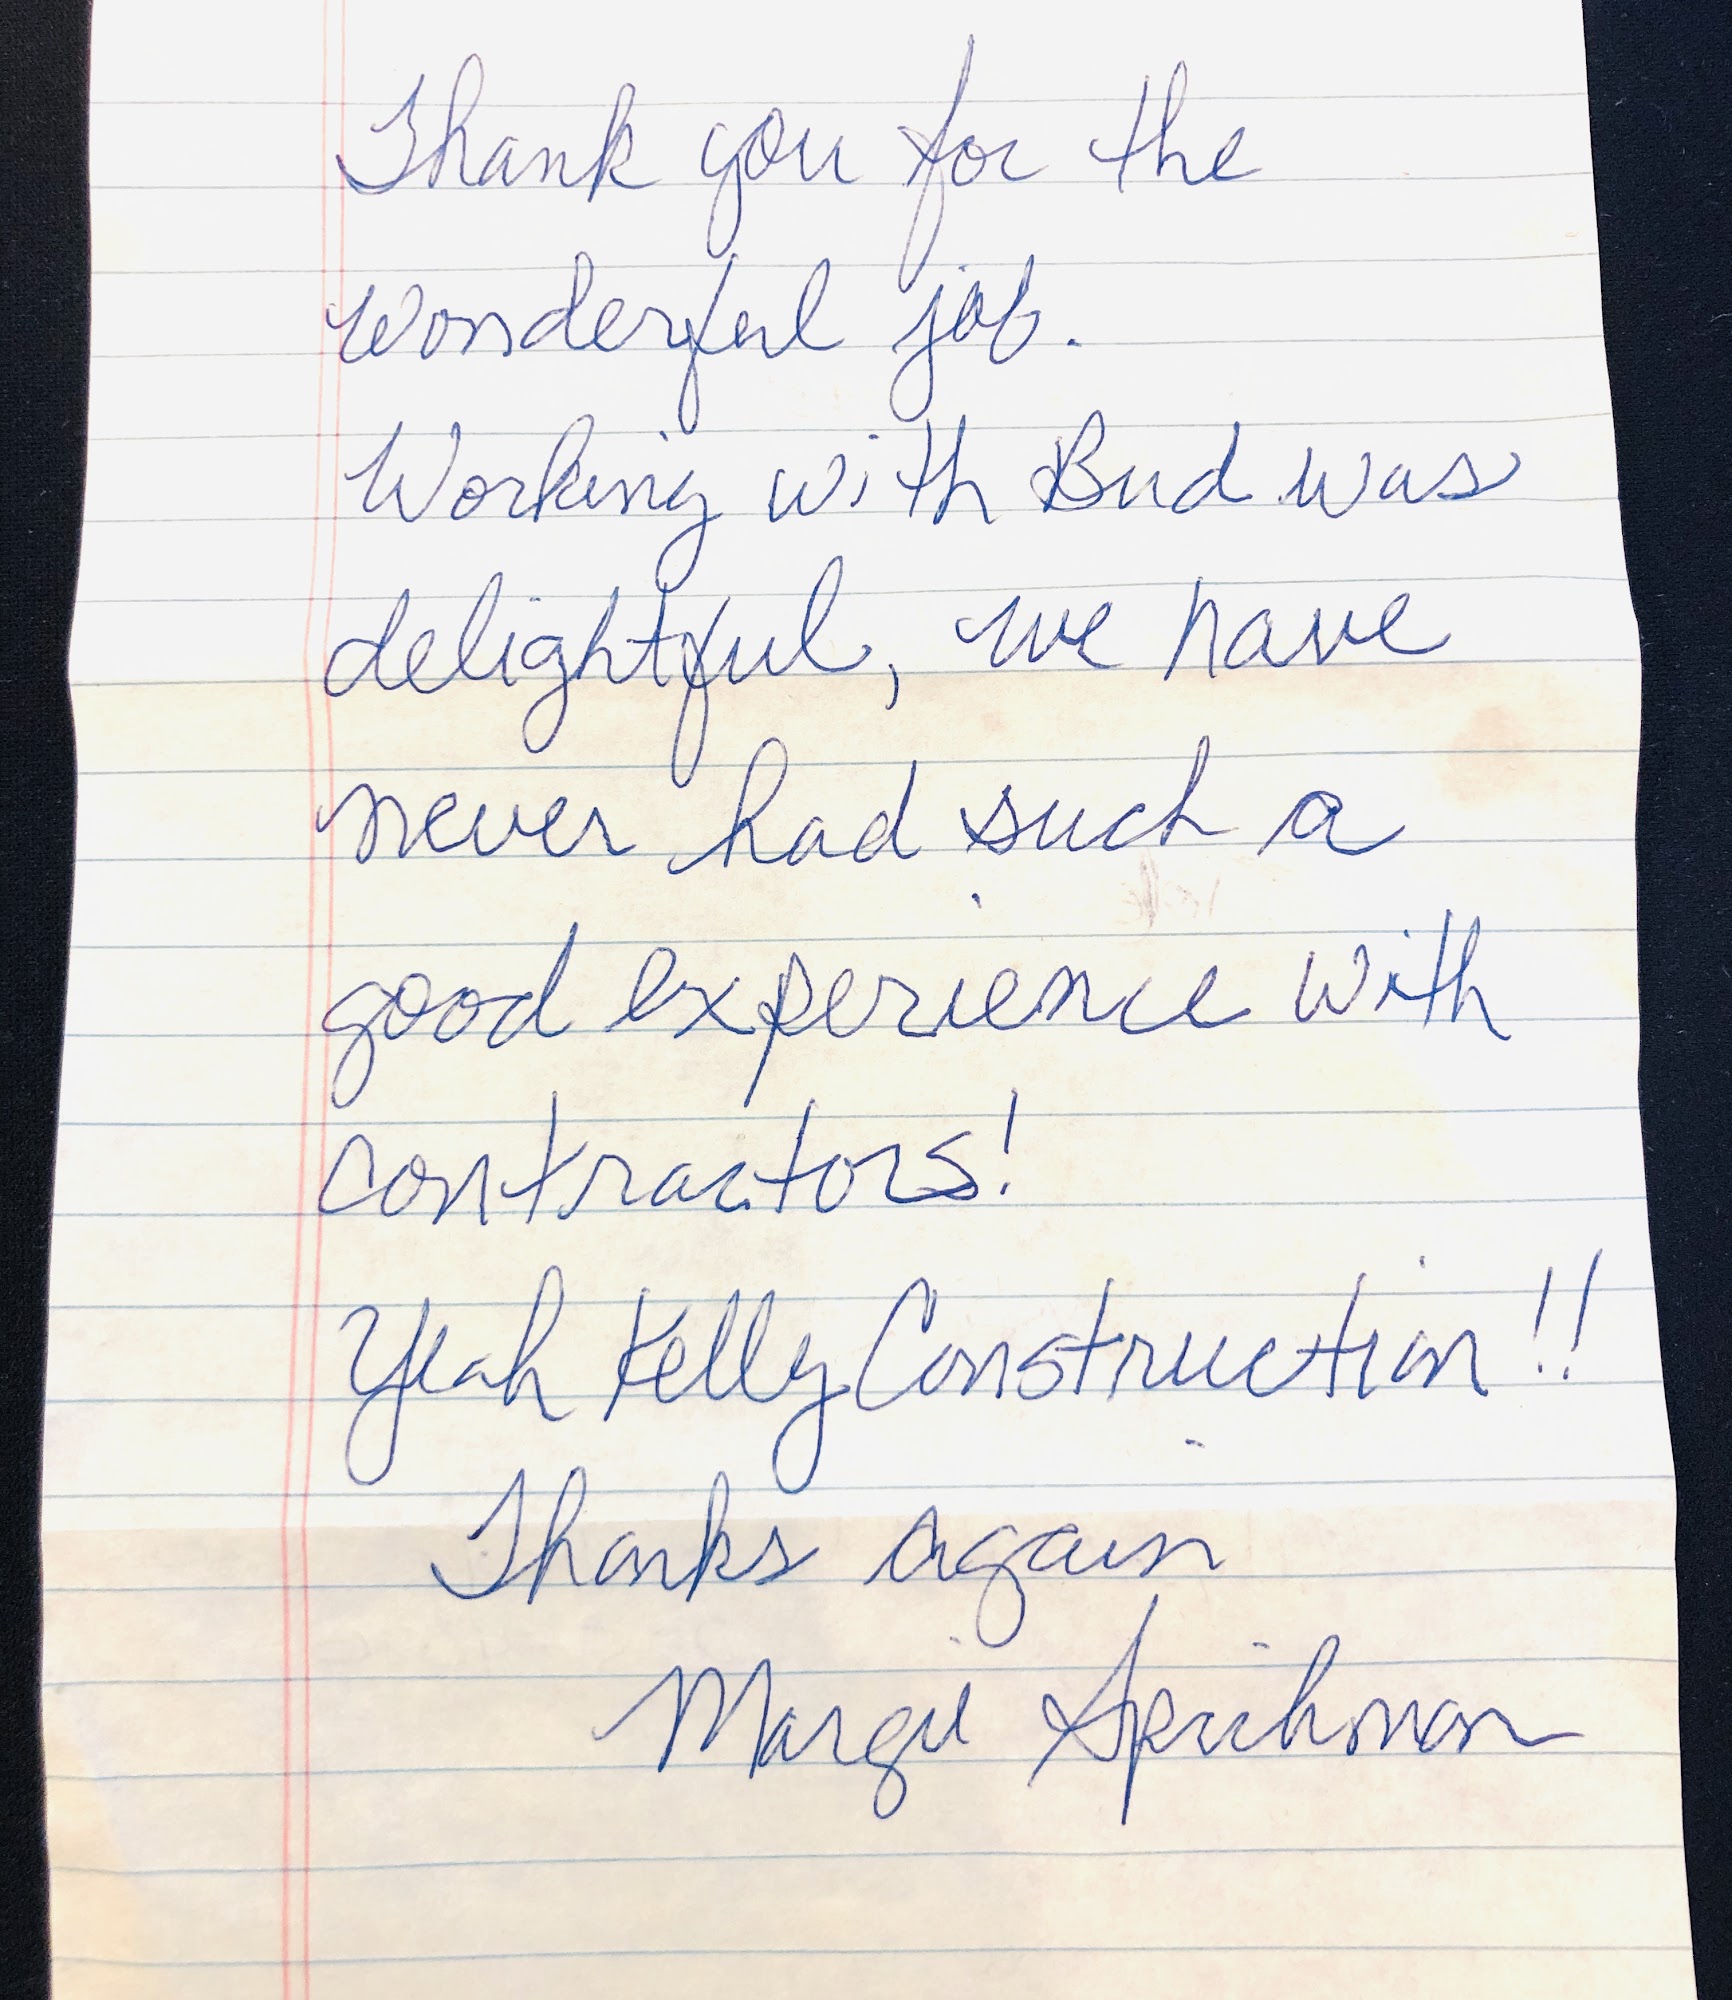 Thank you for the
wonderful job.
Working with Bud was
delightful, we have
never had such a
good experience with
contractors!
Yeah Kelly Construction!!
Thanks again
Margie